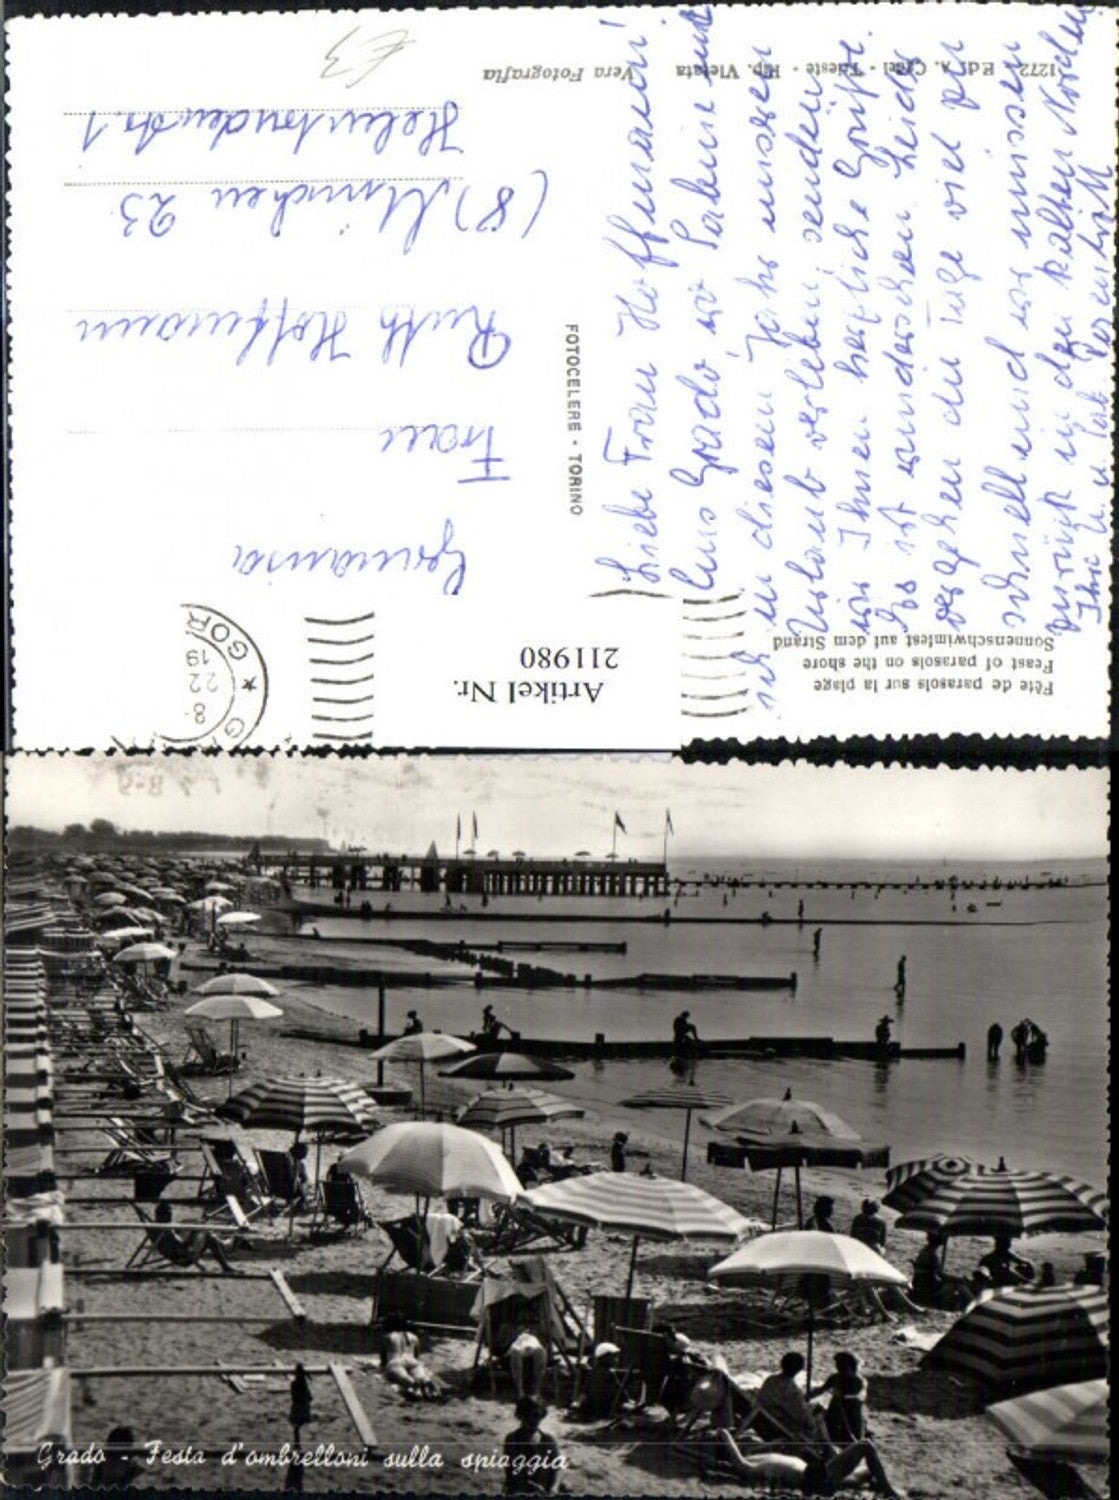 Fête de parasols sur la plage
Feast of parasols on the shore
Sonnenschwimfest auf dem Strand
Artikel Nr.
211980
8-
22
19
GOR
Liebe Frau Hoffmann!
Aus Grado, wo Sabine und
ich in diesem Jahr unseren
Urlaub verleben, senden
wir Ihnen herzliche Grüße.
Es ist wunderschön. Leider
vergehen die Tage viel zu
schnell und wir müssen
zurück in den kalten Norden
Ihre U. u. Sab.
Germania
Frau
Ruth Hoffmann
(8) München 23
1
FOTOCELERE - TORINO
1272 Edit. A. - Trieste - Rip. Vietata
Vera Fotografia
£3
Grado - Festa d'ombrelloni sulla spiaggia